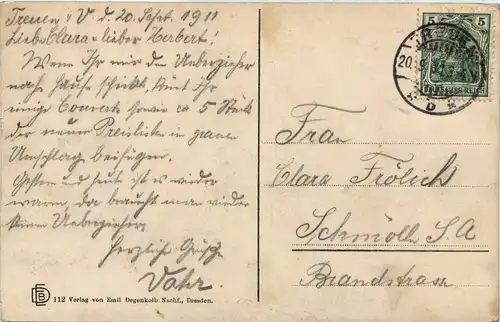 Treuen i. V. d. 20. Sept. 1911
Liebe Clara u. lieber Herbert!
Wenn Ihr mir den Ueberzieher
nach Hause schickt, könnt Ihr
einige Couverts sowie ca 5 Stück
der neuen Preislisten in grauem
Umschlag beifügen.
Gestern und heut ist es wieder
warm, da braucht man wieder
keinen Ueberzieher.
Herzliche Grüße
Vater.
112 Verlag von Emil Degenkolb Nachf., Dresden.
5 5
DEUTSCHES REICH
20. 9.
Frau
Clara Frölich
Schmölln S.A
Brandstrasse